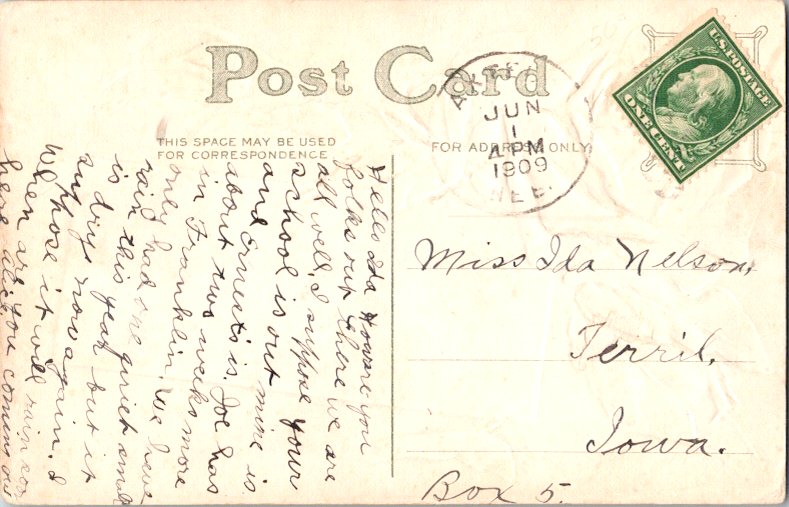 Post Card
THIS SPACE MAY BE USED
FOR CORRESPONDENCE
FOR ADDRESS ONLY
JUN
1
4 PM
1909
NEB.
U.S. POSTAGE
ONE CENT
Miss Ida Nelson,
Terril,
Iowa.
Box 5.
Hello Ida How are you
folks out there we are
all well, I suppose your
school is out mine is
and Ernests is. Joe has
about two weeks more
in Franklin. We have
only had one
rain this year but it
is quiet
and drys now again. I
suppose it will rain soon
When are you coming out
here Alice.